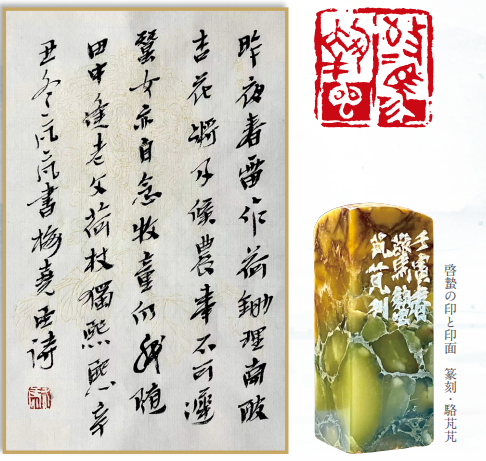 昨夜春雷作荷鋤理南陂
杏花將及候農事不可遲
蠶女亦自念牧童仍我隨
田中逢老父荷杖獨熙熙辛
丑冬芃芃書梅堯臣詩
壬寅春
驚蟄
芃芃刻
啓蟄の印と印面　篆刻・駱芃芃